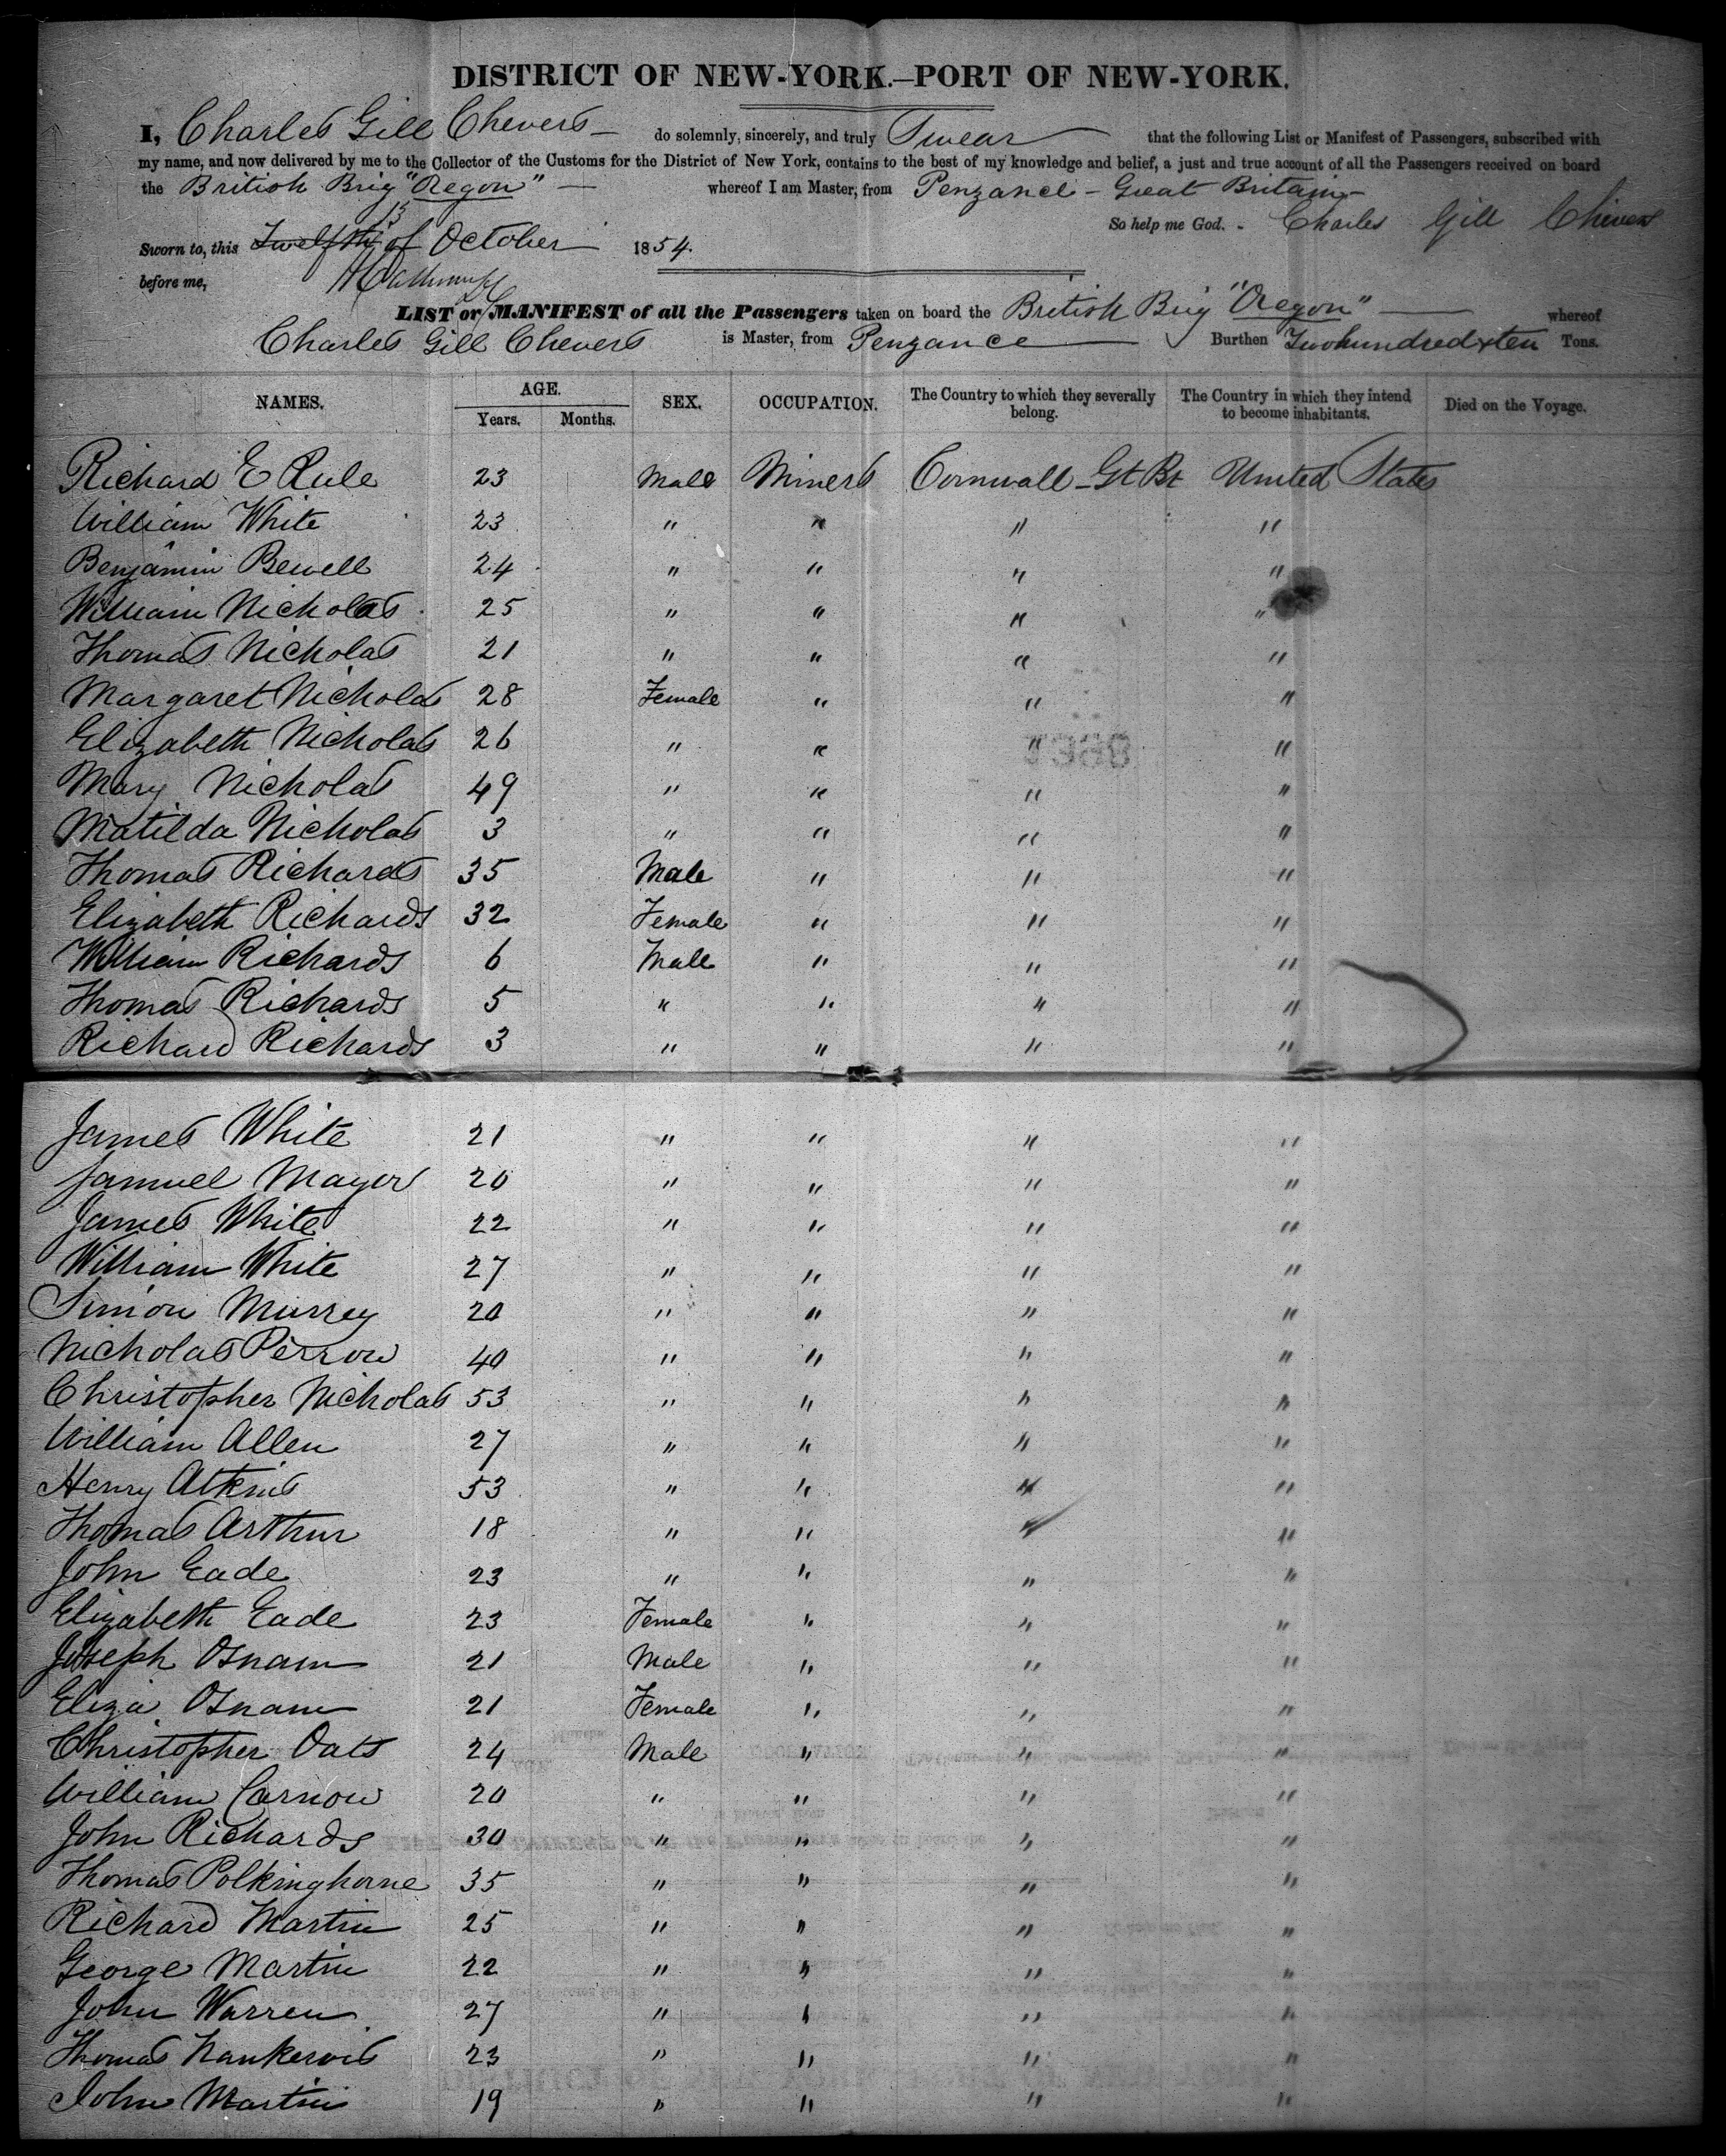 DISTRICT OF NEW-YORK.—PORT OF NEW-YORK.
I, Charles Gill Chevers — do solemnly, sincerely, and truly Swear that the following List or Manifest of Passengers, subscribed with
my name, and now delivered by me to the Collector of the Customs for the District of New York, contains to the best of my knowledge and belief, a just and true account of all the Passengers received on board
the British Brig "Oregon" — whereof I am Master, from Penzance - Great Britain -
So help me God. - Charles Gill Chevers
13
Sworn to, this Twelfth of October 1854.
before me,
LIST or MANIFEST of all the Passengers taken on board the British Brig "Oregon" — whereof
Charles Gill Chevers is Master, from Penzance — Burthen Two hundred & ten Tons.
NAMES. AGE. SEX. OCCUPATION. The Country to which they severally belong. The Country in which they intend to become inhabitants. Died on the Voyage.
Years. Months.
Richard E Rule 23 Male Miners Cornwall - Gt Bt United States
William White 23 " " " "
Benjamin Bewell 24 " " " "
William Nicholas 25 " " " "
Thomas Nicholas 21 " " " "
Margaret Nicholas 28 Female " " "
Elizabeth Nicholas 26 " " " "
Mary Nicholas 49 " " " "
Matilda Nicholas 3 " " " "
Thomas Richards 35 Male " " "
Elizabeth Richards 32 Female " " "
William Richards 6 Male " " "
Thomas Richards 5 " " " "
Richard Richards 3 " " " "
James White 21 " " " "
Samuel Mayor 20 " " " "
James White 22 " " " "
William White 27 " " " "
Simon Murrey 20 " " " "
Nicholas Perrow 40 " " " "
Christopher Nicholas 53 " " " "
William Allen 27 " " " "
Henry Atkins 53 " " " "
Thomas Arthur 18 " " " "
John Eade 23 " " " "
Elizabeth Eade 23 Female " " "
Joseph Osnam 21 Male " " "
Eliza Osnam 21 Female " " "
Christopher Oats 24 Male " " "
William Carnow 20 " " " "
John Richards 30 " " " "
Thomas Polkinghorne 35 " " " "
Richard Martin 25 " " " "
George Martin 22 " " " "
John Warren 27 " " " "
Thomas Nankervis 23 " " " "
John Martin 19 " " " "